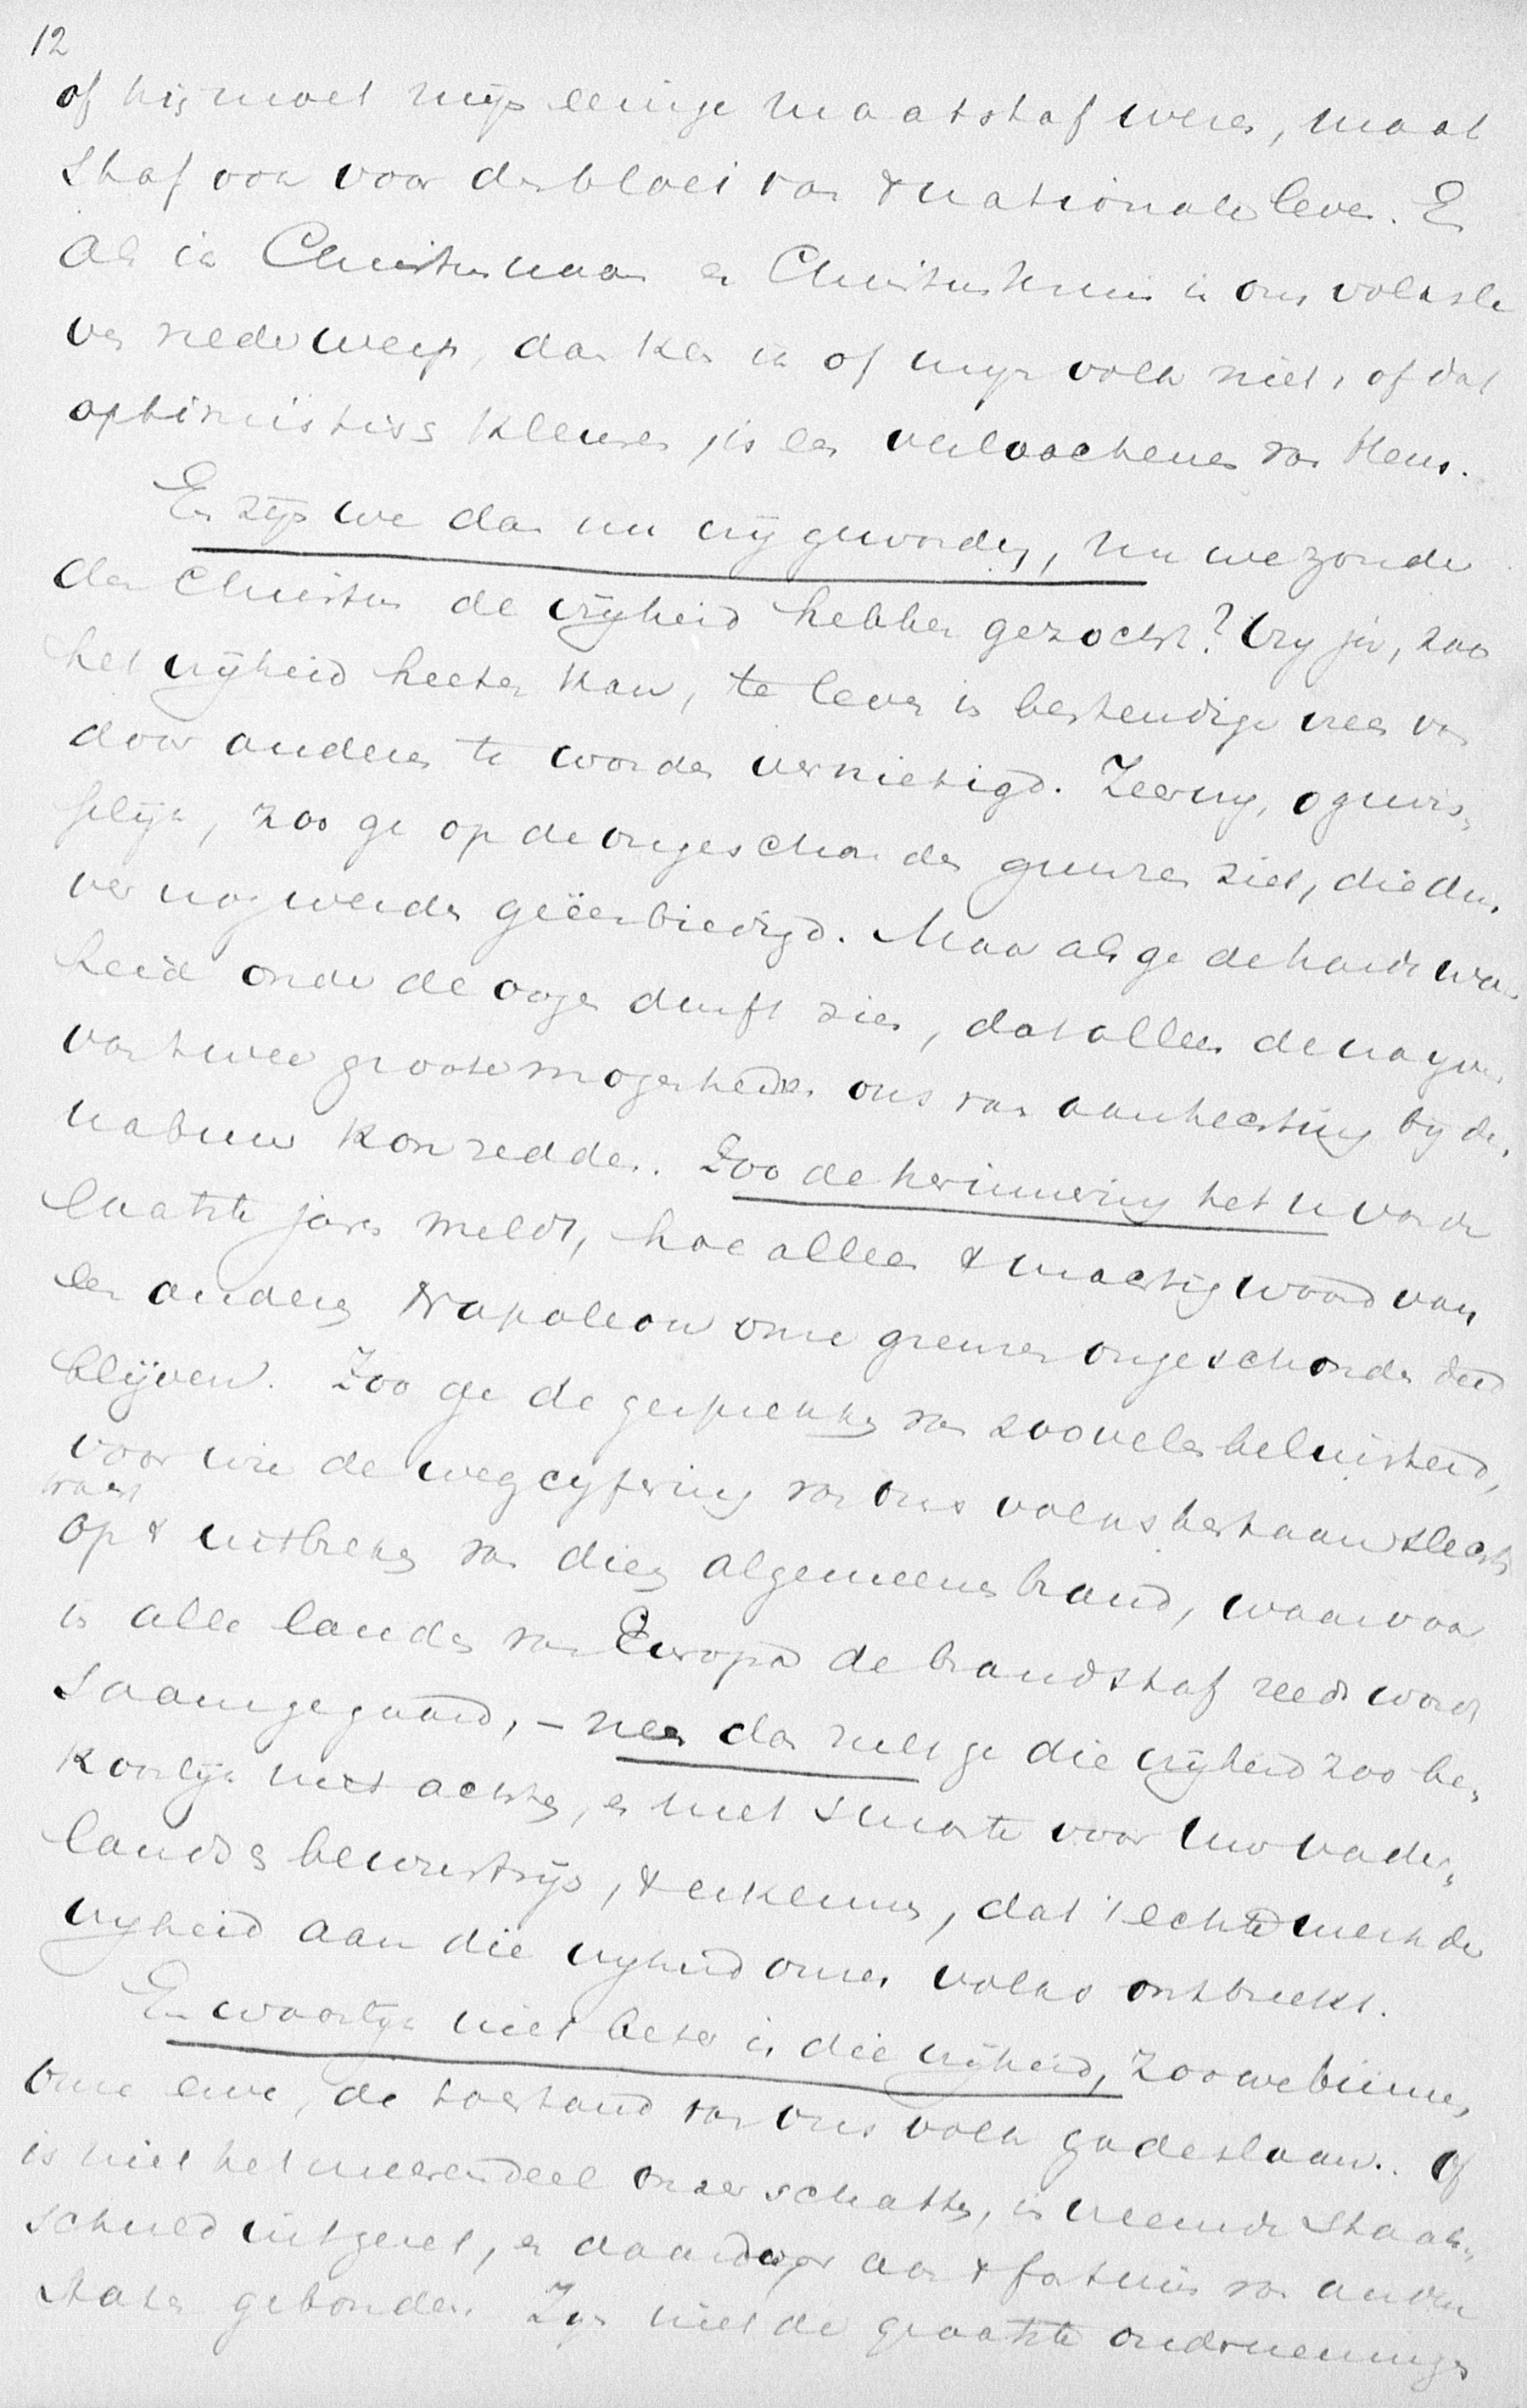 12
of hij moet mijn eenige maatstaf wezen, maat
staf ook voor den bloei van 't nationale leven. En
als ik Christus naar en Christus kruis in ons volksle
ven nederwerp, dan ken ik of mijn volk niet, of dat
optimistisch kleuren, is een verloochenen van Hem.
En zijn we dan nu vrij geworden, nu we zonder
den Christus de vrijheid hebben gezocht? Vrij ja, zoo
het vrijheid heeten kan, te leven in bestendige vrees van
door anderen te worden vernietigd. Zeer vrij, o gewis,
selijk, zoo ge op de ongeschonden grenzen ziet, die dus
ver nog werden geëerbiedigd. Maar als ge de harde waar
heid onder de oogen durft zien, dat alleen de naijver
van twee groote mogendheden ons van aanhechting bij den
nabuur kon redden. Zoo de herinnering het u van de
laatste jaren meldt, hoe alleen 't machtig woord van
een anderen Napoleon onze grenzen ongeschonden deed
blijven. Zoo ge de gesprekken van zoovelen beluisterd,
voor wie de wegcyfering van ons volksbestaan slechts
wacht
op 't uitbreken van dien algemeenen brand, waarvoor
in alle landen van Europa de brandstof reeds wordt
saamgegaard, – neen dan zult ge die vrijheid zoo be,
koorlijk niet achten, en met smarte voor uw vader,
landsbewustzijn, 't erkennen, dat 't echte merk der
vrijheid aan die vrijheid onzes volks ontbreekt.
En waarlijk niet beter is die vrijheid, zoo we binnen
onze erve, de toestand van ons volk gadeslaan. Of
is niet het meerendeel onzer schatten, in vreemde Staats,
schuld uitgezet, en daardoor aan 't fortuin van andere
staten gebonden. Zijn niet de grootste ondernemingen